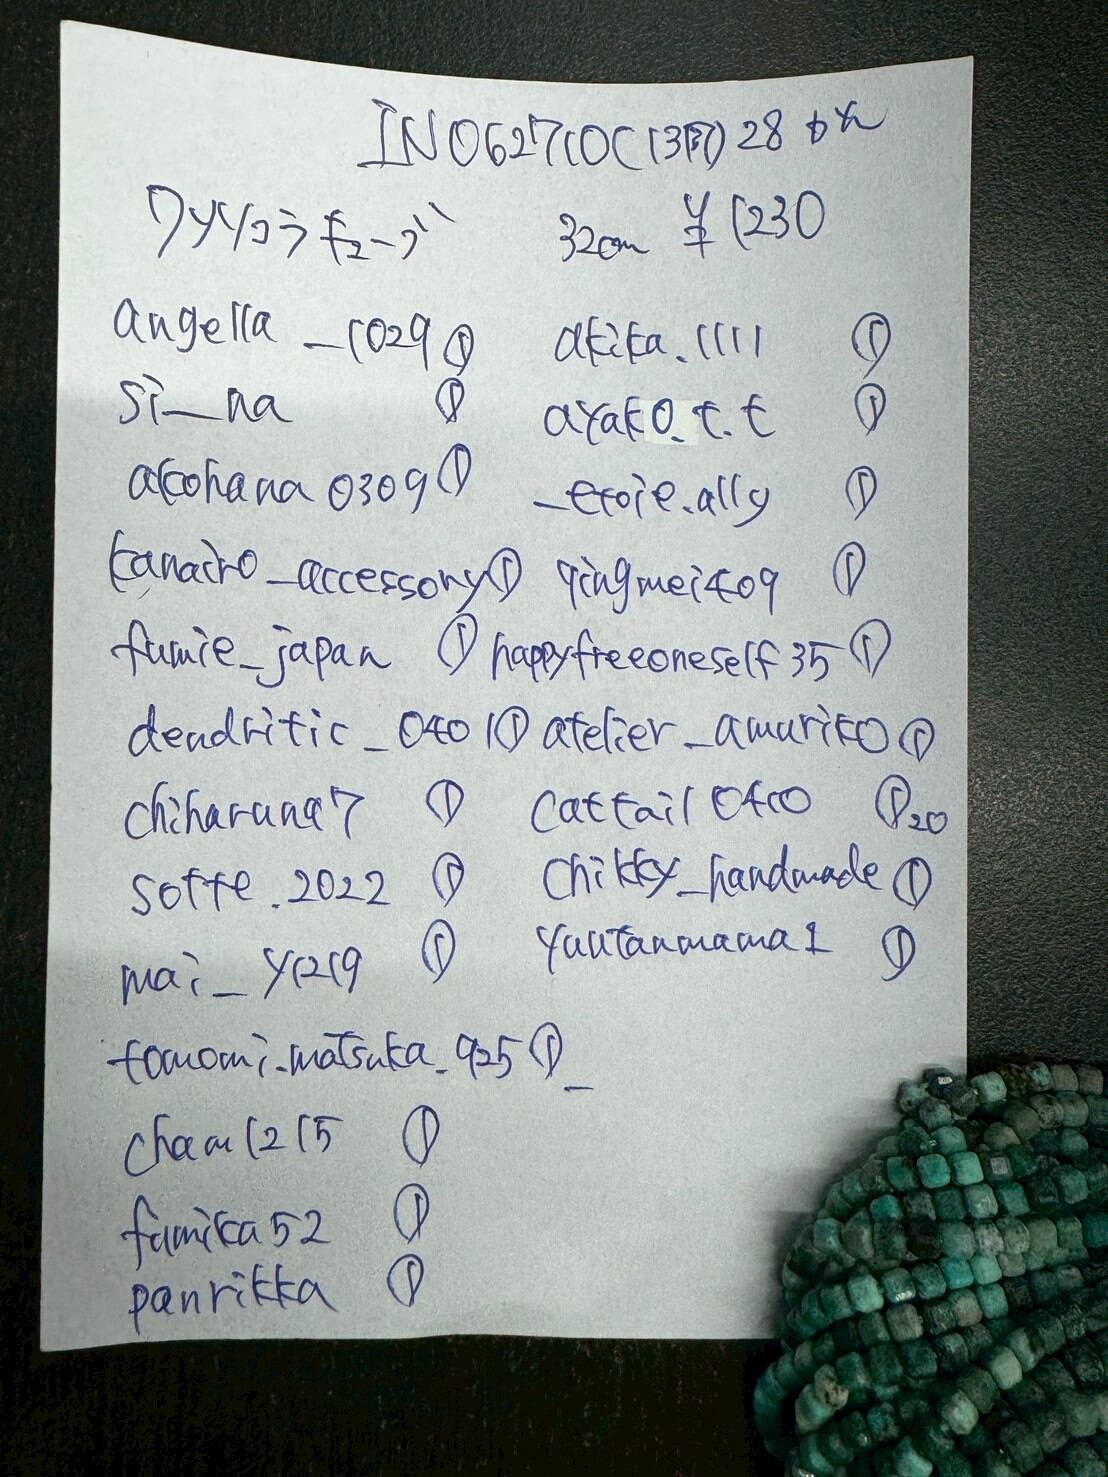 IN062710C(13円) 28
クリソコラキューブ 32cm ¥1230
angella_1029 ①
si_na ①
akohana0309 ①
kanairo_accessory ①
fumie_japan ①
dendritic_0401 ①
chiharuna7 ①
sotte.2022 ①
mai_y1219 ①
tomomi.matsuka.925 ①
cham1215 ①
fumika52 ①
panrikka ①
akika.1111 ①
ayako.t.t ①
_etoie.ally ①
qingmei409 ①
happyfreeoneself35 ①
atelier_amuriko ①
cattail0410 ①20
chikky_handmade ①
yuutanmama1 ①